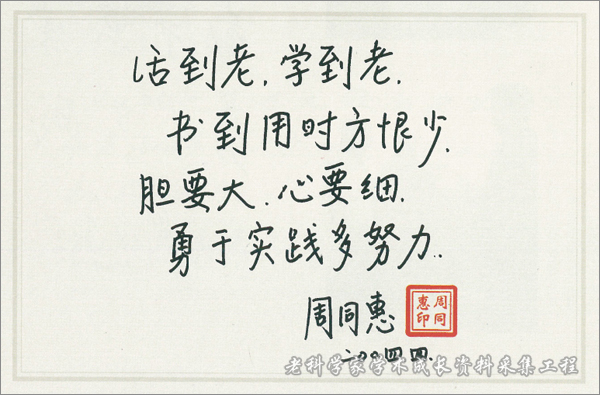 活到老,学到老.
书到用时方恨少.
胆要大.心要细.
勇于实践多努力.
周同惠
周同惠印
二〇〇四四.
老科学家学术成长资料采集工程